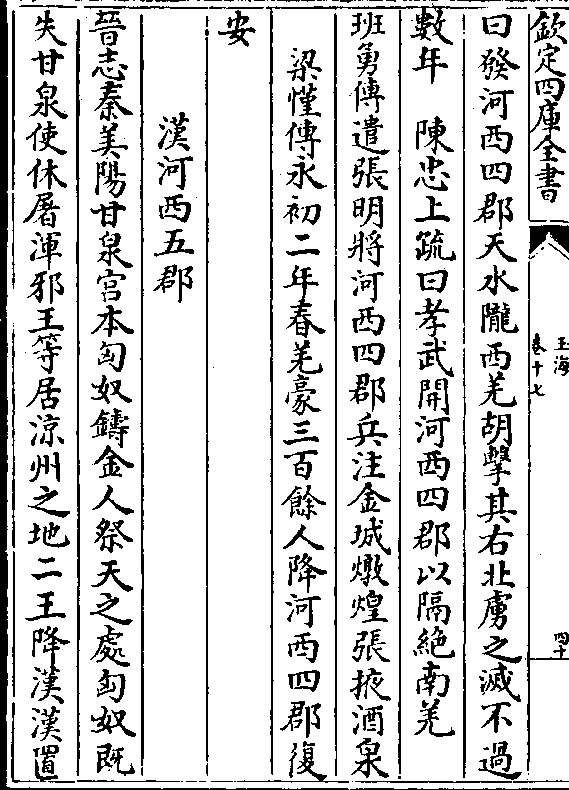 欽定四庫全書
玉海
卷十七
四十
曰發河西四郡天水隴西羌胡擊其右北虜之滅不過
數年　陳忠上疏曰孝武開河西四郡以隔絶南羌
班勇傳遣張明將河西四郡兵注金城燉煌張掖酒泉
梁慬傳永初二年春羌豪三百餘人降河西四郡復
安
漢河西五郡
晉志秦美陽甘泉宫本匈奴鑄金人祭天之處匈奴既
失甘泉使休屠渾邪王等居涼州之地二王降漢漢置